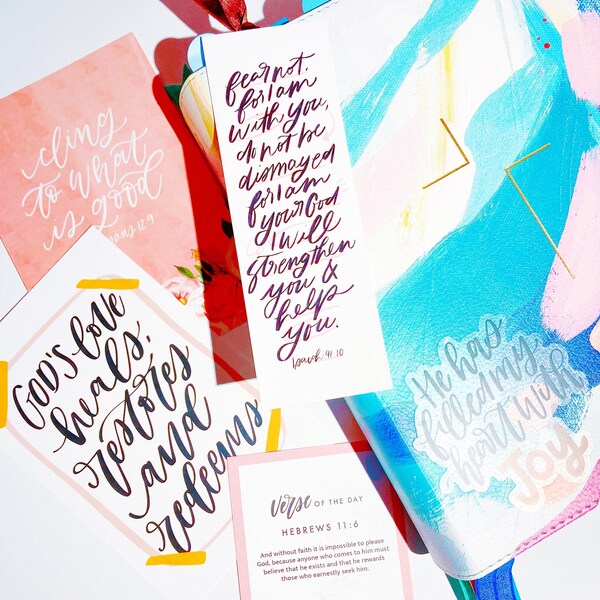 cling
to what
is good
fear not,
for I am
with you,
do not be
dismayed
for I am
your God.
I will
strengthen
you &
help
you.
Isaiah 41:10
GOD'S love
heals,
restores
and
redeems
He has
filled my
heart with
JOY
verse OF THE DAY
HEBREWS 11:6
And without faith it is impossible to please
God, because anyone who comes to him must
believe that he exists and that he rewards
those who earnestly seek him.